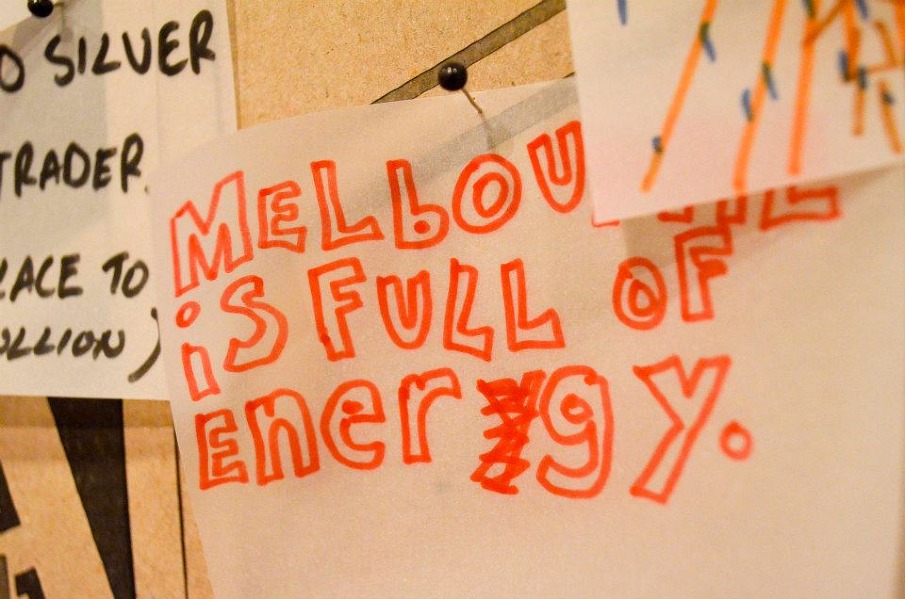 O SILVER
TRADER.
LACE TO
ULLION)
MELbOURNE
iS FULL OF
Energy.